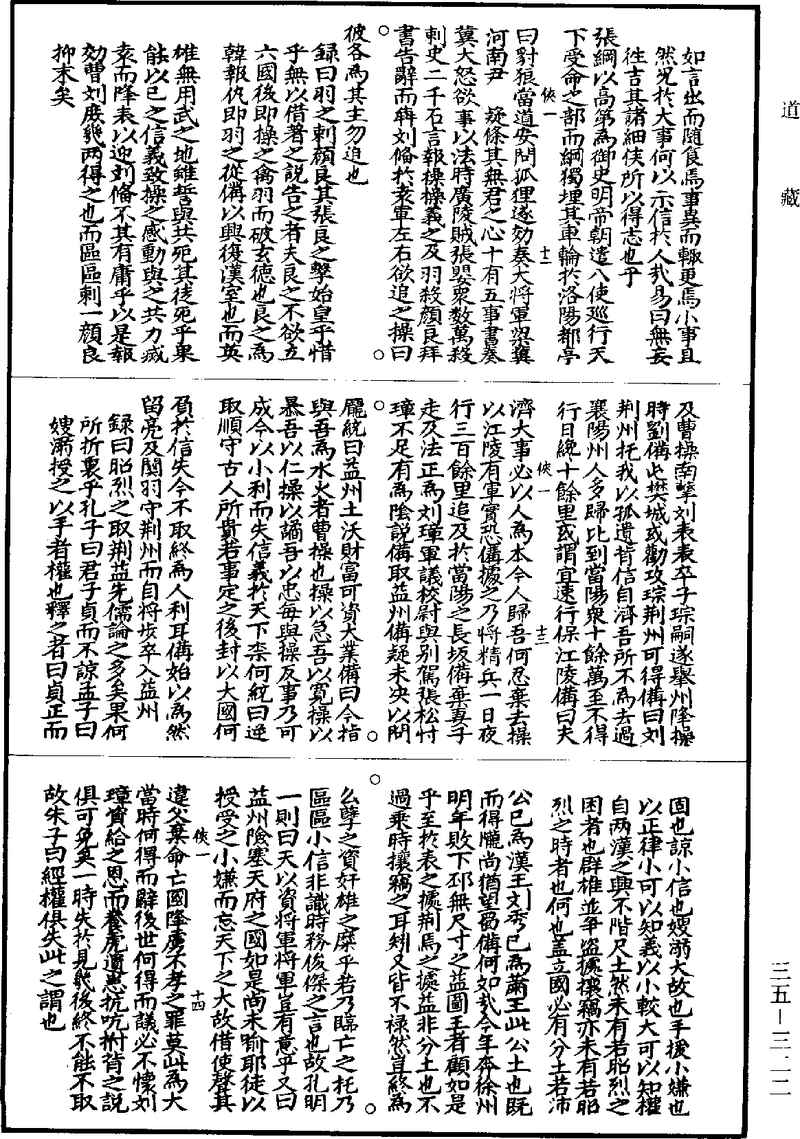 道藏
如言出而随食焉事異而輙更焉小事且
然况於大事何以示信於人哉易曰無妄
徃吉其諸細俠所以得志也乎
張綱以高第為御史明帝朝遣八使巡行天
下受命之部而綱獨埋其車輪於洛陽都亭
俠一 十二
曰豺狼當道安問狐狸遂劾奏大將軍梁冀
河南尹 疑條其無君之心十有五事書奏
冀大怒欲事以法時廣陵賊張嬰衆数萬殺
刺史二千石言報操操義之及羽殺顔良拜
書告辭而犇刘俻於袁軍左右欲追之操曰
彼各為其主勿追也
録曰羽之刺顔良其張良之擊始皇乎惜
乎無以借著之說告之者夫良之不欲立
六國後即操之禽羽而破玄德也良之為
韓報仇即羽之從俻以興復漢室也而英
雄無用武之地維誓與共死其徒死乎果
能以已之信義致操之感動與之共力滅
袁而降表以迎刘俻不其有庸乎以是報
効曹刘庶幾两得之也而區區刺一顔良
抑末矣
及曹操南擊刘表表卒子琮嗣遂舉州降操
時劉俻屯樊城或勸攻琮荆州可得俻曰刘
荆州托我以孤遺背信自濟吾所不為去過
襄陽州人多歸比到當陽衆十餘萬至不得
行日纔十餘里或謂宜速行保江陵俻曰夫
俠一 十三
濟大事必以人為本今人歸吾何忍棄去操
以江陵有軍實恐俻據之乃將精兵一日夜
行三百餘里追及於當陽之長坂俻棄妻子
走及法正為刘璋軍議校尉與别駕張松忖
璋不足有為陰說俻取益州俻疑未决以問
龎統曰益州土沃財富可資大業俻曰今指
與吾為水火者曹操也操以急吾以寛操以
暴吾以仁操以譎吾以忠每與操反事乃可
成今以小利而失信義於天下柰何統曰逆
取順守古人所貴若事定之後封以大國何
負於信失今不取終為人利耳俻始以為然
留亮及関羽守荆州而自將歩卒入益州
録曰昭烈之取荆益先儒論之多矣果何
所折衷乎孔子曰君子貞而不諒孟子曰
嫂溺授之以手者權也釋之者曰貞正而
固也諒小信也嫂溺大故也手援小嫌也
以正律小可以知義以小較大可以知權
自两漢之興不階尺土然未有若昭烈之
困者也群雄並爭盗據攘竊亦未有若昭
烈之時者也何也盖立國必有分土若沛
公已為漢王刘秀已為蕭王此公土也既
而得隴尚猶望蜀俻何如哉今年奔徐州
明年敗下邳無尺寸之益圖王者顧如是
乎至於表之據荆焉之據益非分土也不
過乘時攘竊之耳矧又皆不禄然且終為
么孽之資奸雄之縻乎若乃臨亡之托乃
區區小信非識時務俊傑之言也故孔明
一則曰天以資將軍將軍豈有意乎又曰
益州險塞天府之國如是尚未喻耶徒以
授受之小嫌而忘天下之大故借使聲其
俠一 十四
違父棄命亡國降虜不孝之罪莫此為大
當時何得而辭後世何得而議必不懷刘
璋資給之恩而養虎遺患抗吭拊背之說
俱可免矣一時失於見幾後終不能不取
故朱子曰經權俱失此之謂也
三五-三一二